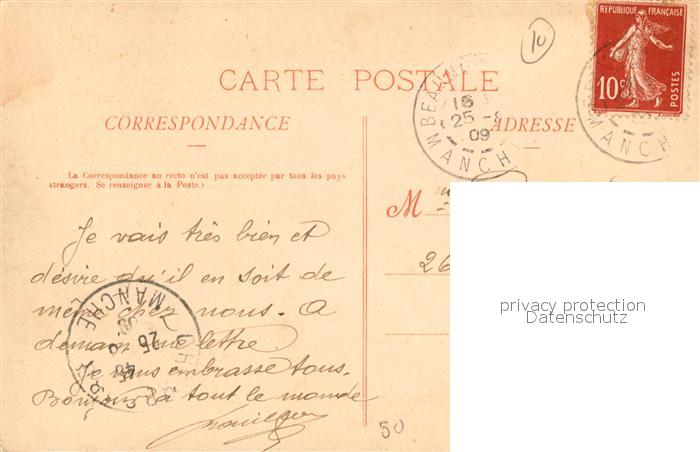 10
RÉPUBLIQUE FRANÇAISE
10c
POSTES
CARTE POSTALE
BEAUM
16
25
09
MANCHE
MANCH
CORRESPONDANCE
ADRESSE
La Correspondance au recto n'est pas acceptée par tous les pays
étrangers. Se renseigner à la Poste.)
M
26
Je vais très bien et
désire qu'il en soit de
même chez nous. A
demain une lettre.
Je vous embrasse tous.
Bonjour à tout le monde
MANCHE
25
CHERBOURG
50
privacy protection
Datenschutz